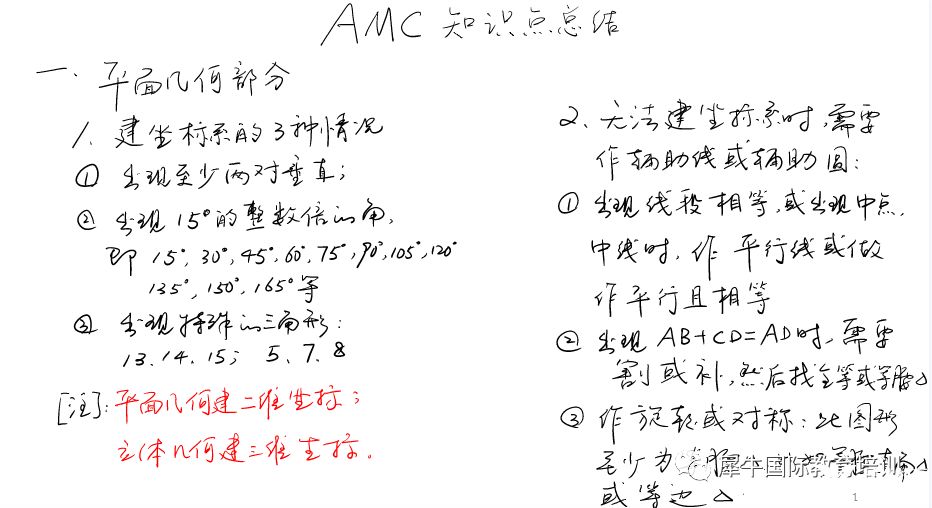 AMC 知识点总结
一、平面几何部分
1、建坐标系的3种情况
① 出现至少两对垂直;
② 出现15°的整数倍的角,
即 15°,30°,45°,60°,75°,90°,105°,120°
135°,150°,165°等
③ 出现特殊的三角形:
13、14、15; 5、7、8
[注]:平面几何建二维坐标;
立体几何建三维坐标.
2、无法建坐标系时,需要
作辅助线或辅助圆:
① 出现线段相等,或出现中点,
中线时,作平行线或做
作平行且相等
② 出现 AB+CD=AD时,需要
割或补,然后找全等或等腰△
③ 作旋转或对称:此图形
至少为
犀牛国际教育培训
或等边△
1